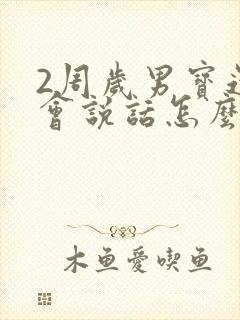 2周歲男寶
會說話怎麼
木鱼愛喫鱼